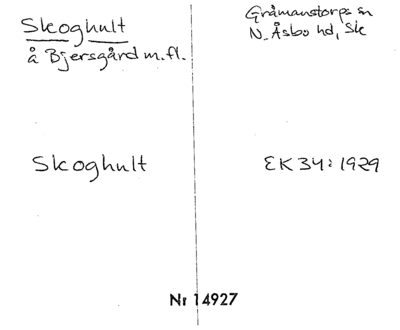 Skoghult
å Bjersgård m.fl.
Gråmanstorps sn
N. Åsbo hd, Sk
Skoghult
EK34:1929
Nr 14927